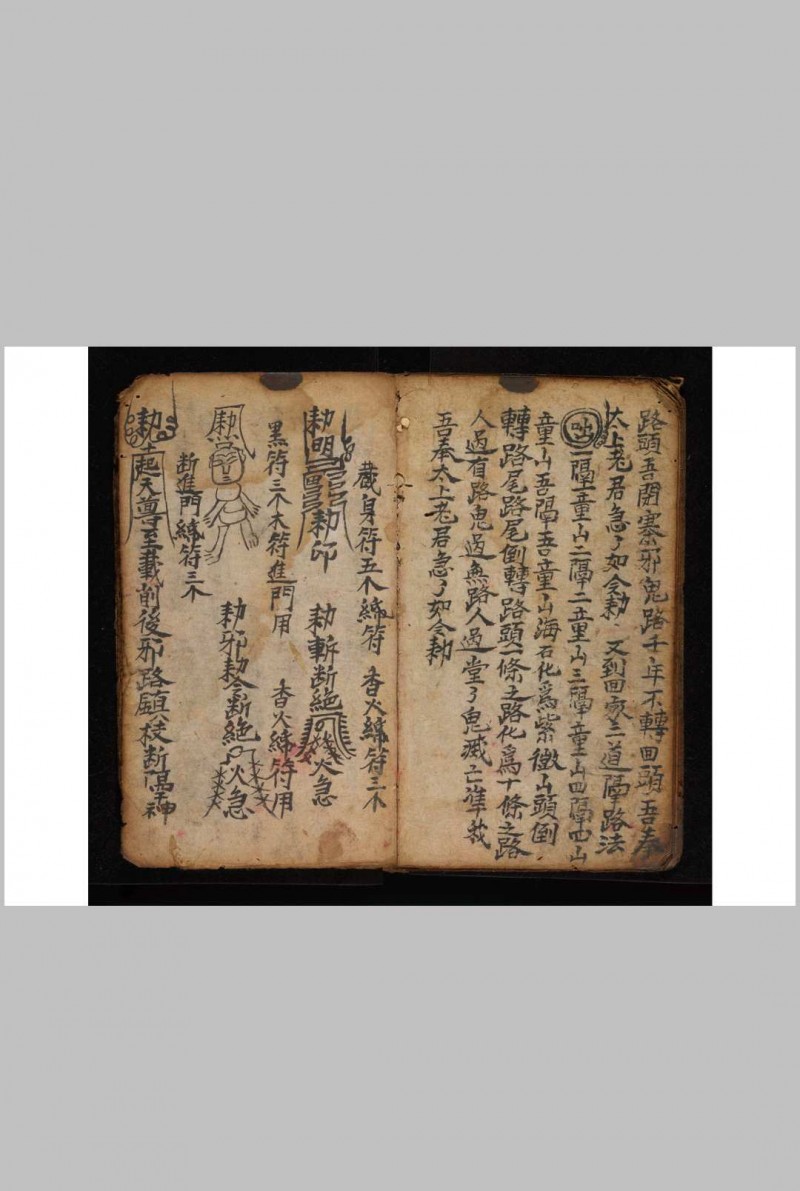 路頭吾開寨邪鬼路千年不轉回頭吾奉
太上老君急了如令勅又到回家三道隔路法
一隔一童山二隔二童山三隔童山四隔四山
童山吾隔吾童山海石化爲紫微山頭倒
轉路尾路尾倒轉路頭一條之路化爲十條之路
人過有路鬼過無路人過堂了鬼滅亡準我
吾奉太上老君急了如令勅
藏身符五个 符 香火 符三个
勅明 勅印 勅斬断絶 火急
黑符三个大符進門用 香火 符用
勅邪勅令断絶 火急
断進門 符三个
勅 起天尊至載前後邪路 断隔神